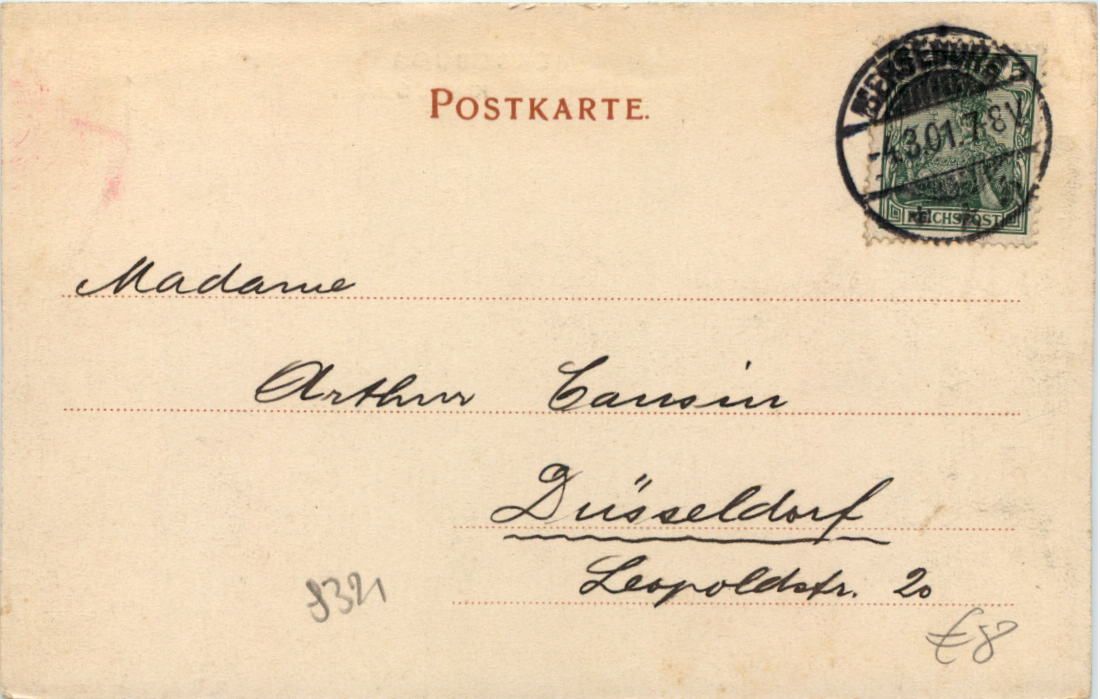 POSTKARTE.
MERSEBURG 2
-4.3.01.7-8V
REICHSPOST
Madame
Arthur Cansin
Düsseldorf
Leopoldstr. 20
8321
€8